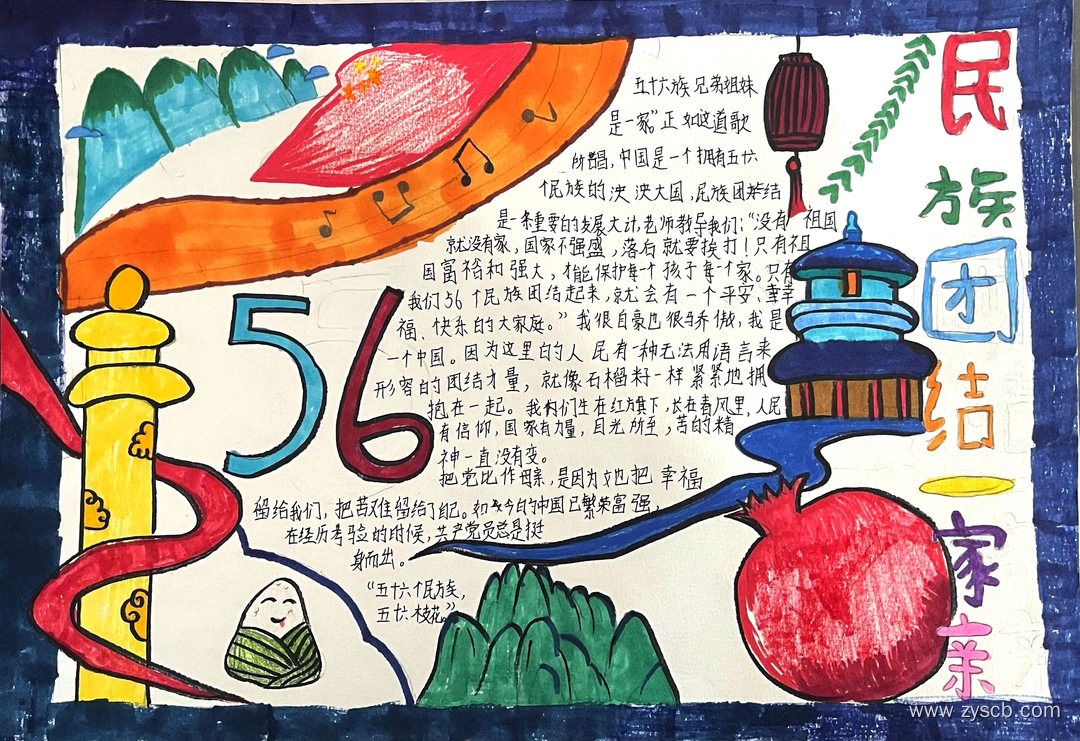 民族团结一家亲
56
五十六族兄弟姐妹
是一家”正如这道歌
所唱，中国是一个拥有五十六
民族的泱泱大国，民族团结
是一条重要的发展大计，老师教导我们：“没有祖国
就没有家，国家不强盛，落后就要挨打！只有祖
国富裕和强大，才能保护每个孩子每个家。只有
我们56个民族团结起来，就会有一个平安、幸
福、快乐的大家庭。”我很自豪也很骄傲，我是
一个中国。因为这里的人民有一种无法用语言来
形容的团结力量，就像石榴籽一样紧紧地拥
抱在一起。我们生在红旗下，长在春风里，人民
有信仰，国家有力量，目光所至，苦的精
神一直没有变。
把党比作母亲，是因为她把幸福
留给我们，把苦难留给了自己。如今的中国已繁荣富强，
在经历考验的时候，共产党员总是挺
身而出。
“五十六个民族，
五十六枝花。”
www.zyscb.com